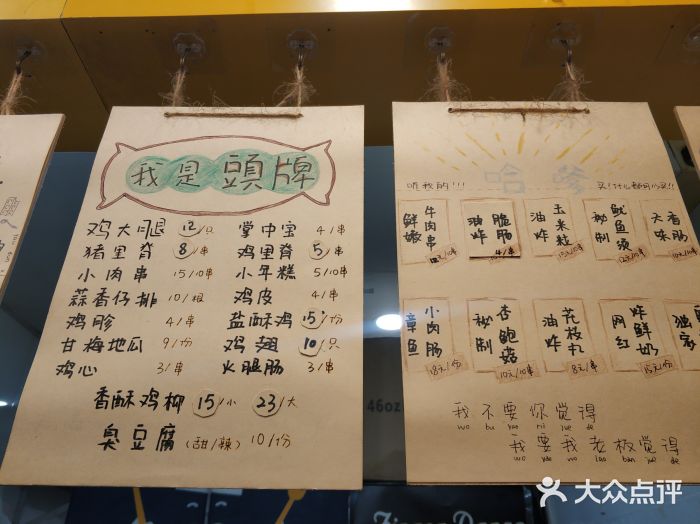 我是頭牌
鸡大腿 12/只 掌中宝 4/串
猪里脊 8/串 鸡里脊 5/串
小肉串 15/10串 小年糕 5/10串
蒜香仔排 10/根 鸡皮 4/串
鸡胗 4/串 盐酥鸡 15/份
甘梅地瓜 9/份 鸡翅 10/只
鸡心 3/串 火腿肠 3/串
香酥鸡柳 15/小 23/大
臭豆腐(甜/辣) 10/份
哈爹
听我的!!!
鲜嫩牛肉串
油炸脆肠 4/串
油炸玉米粒
秘制鱿鱼须
大味香肠
章鱼小肉肠 18元/份
秘制杏鲍菇 10元/10串
油炸花枝丸 8元/串
网红炸鲜奶 15元/份
独家
我不要你觉得
wo bu yao ni jue de
我要我老板觉得
wo yao wo lao ban jue de
46oz
大众点评